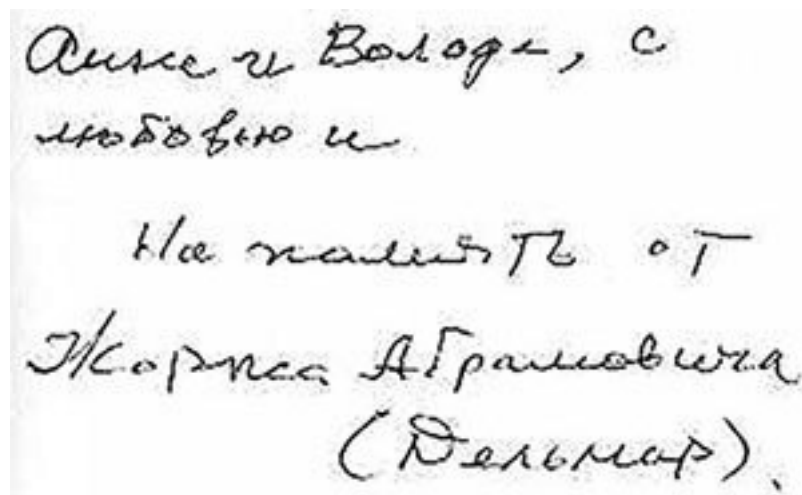 Анне и Володе, с
любовью и
На память от
Жоржа Абрамовича
(Дельмар).